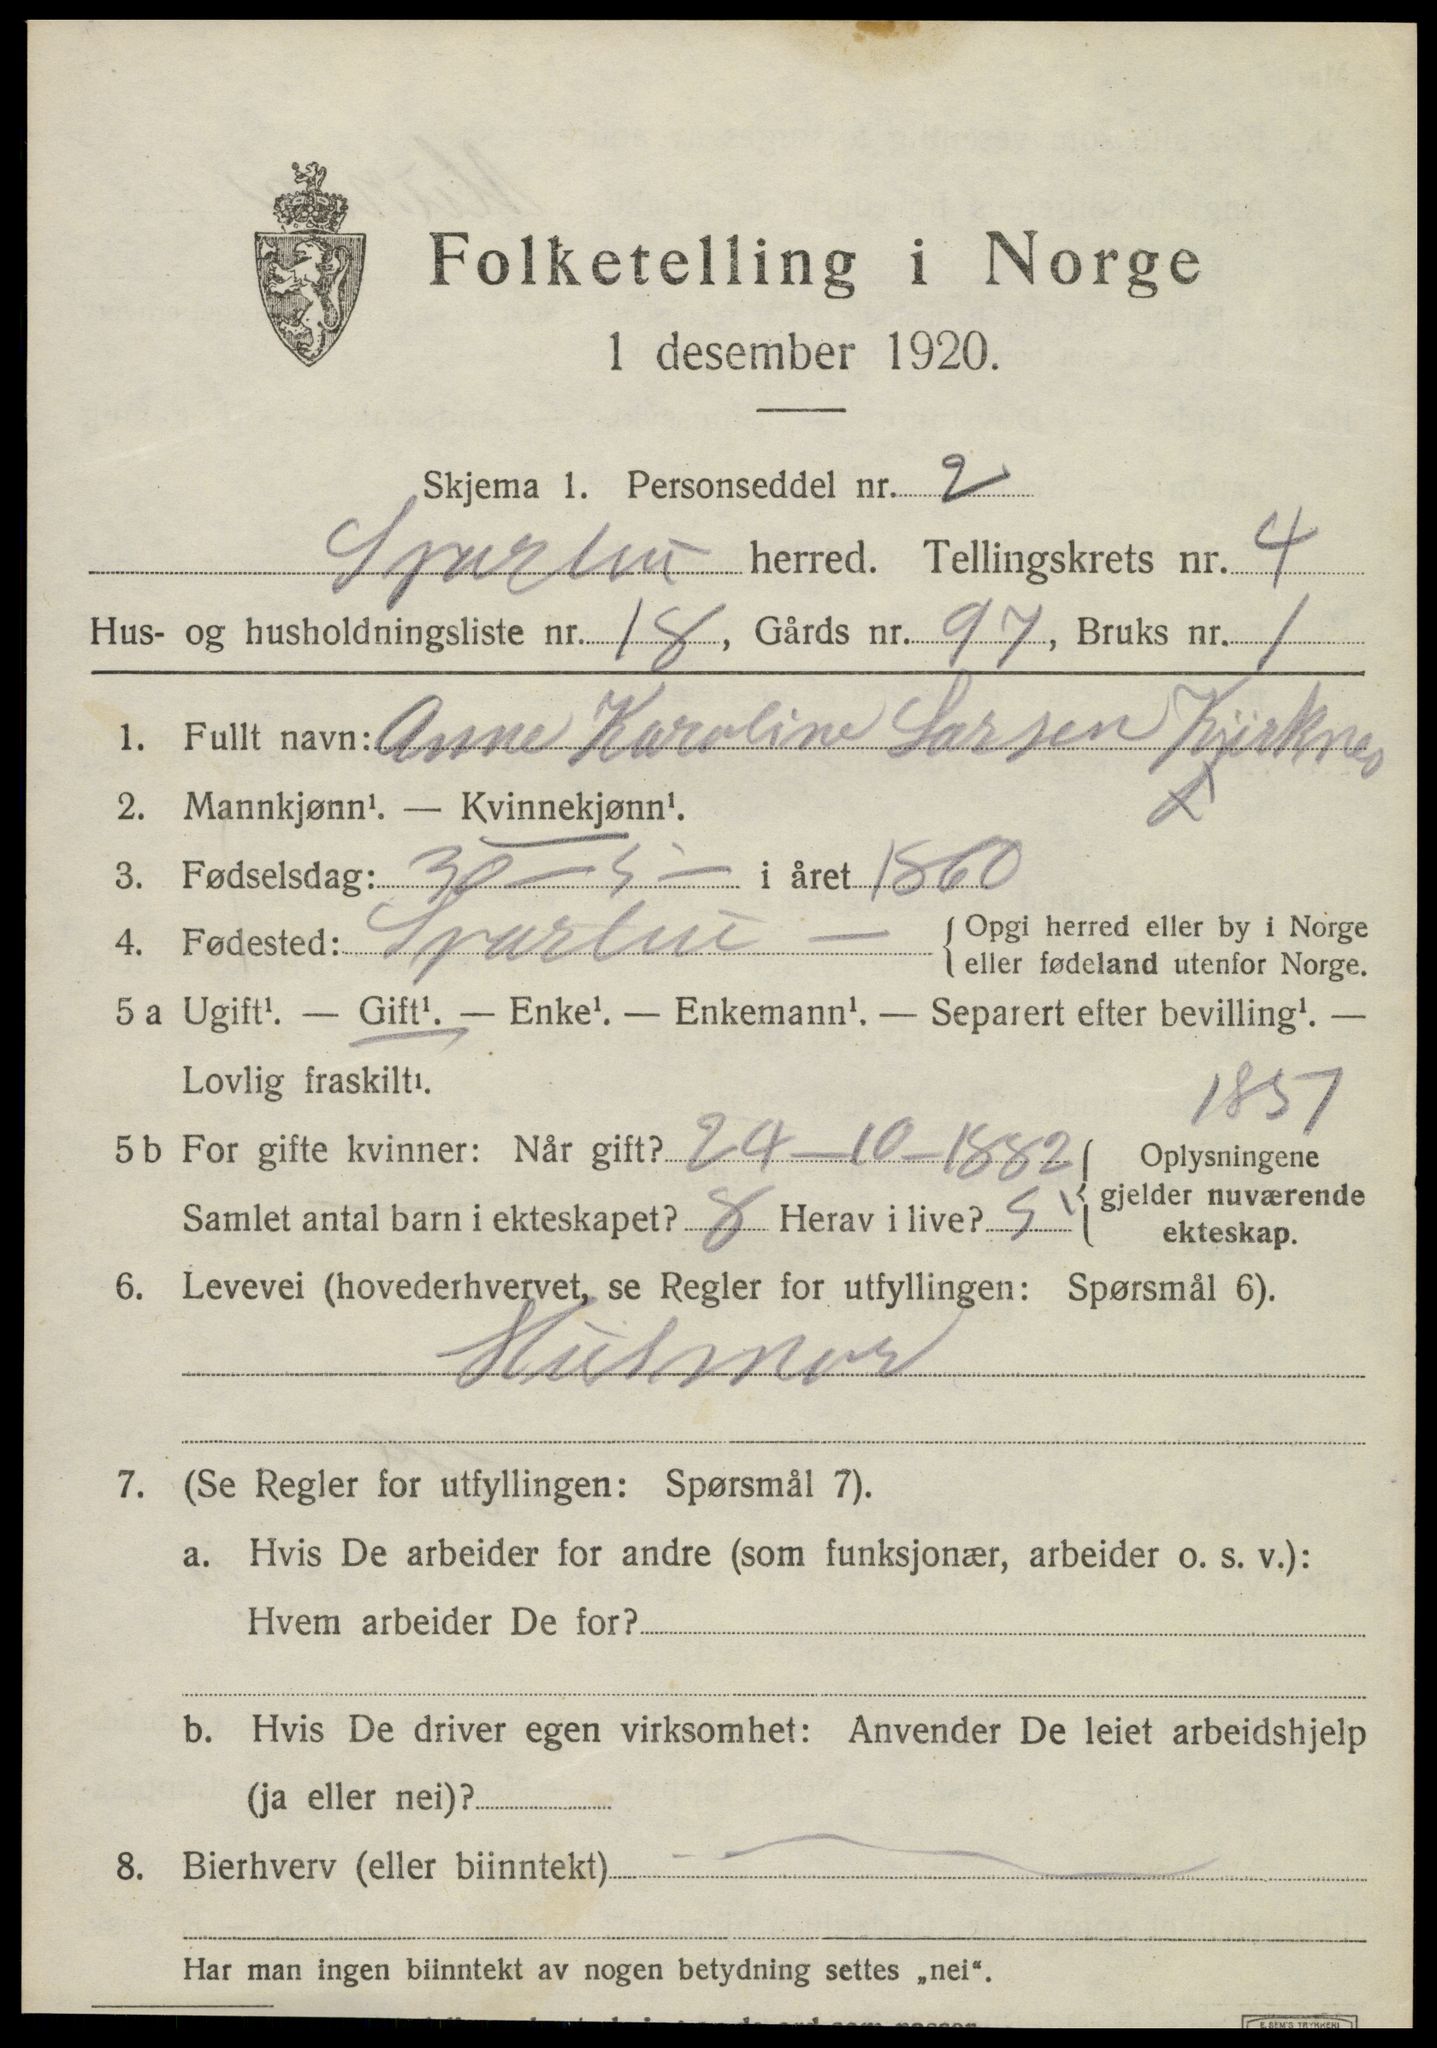 Folketelling i Norge
1 desember 1920.
Skjema 1. Personseddel nr. 2
Sparbu herred. Tellingskrets nr. 4
Hus- og husholdningsliste nr. 18, Gårds nr. 97, Bruks nr. 1
1. Fullt navn: Anne Karoline Larsen Kjirknes
2. Mannkjønn¹. — Kvinnekjønn¹.
3. Fødselsdag: 30 – 5 – i året 1860
4. Fødested: Sparbu — { Opgi herred eller by i Norge
eller fødeland utenfor Norge.
5 a Ugift¹. — Gift¹. — Enke¹. — Enkemann¹. — Separert efter bevilling¹. —
Lovlig fraskilt¹.
1857
5 b For gifte kvinner: Når gift? 24–10–1882 { Oplysningene
gjelder nuværende
ekteskap.
Samlet antal barn i ekteskapet? 8 Herav i live? 5
6. Levevei (hovederhvervet, se Regler for utfyllingen: Spørsmål 6).
Husmor
7. (Se Regler for utfyllingen: Spørsmål 7).
a. Hvis De arbeider for andre (som funksjonær, arbeider o. s. v.):
Hvem arbeider De for?
b. Hvis De driver egen virksomhet: Anvender De leiet arbeidshjelp
(ja eller nei)?
8. Bierhverv (eller biinntekt) —
Har man ingen biinntekt av nogen betydning settes „nei“.
E. SEM'S TRYKKERI